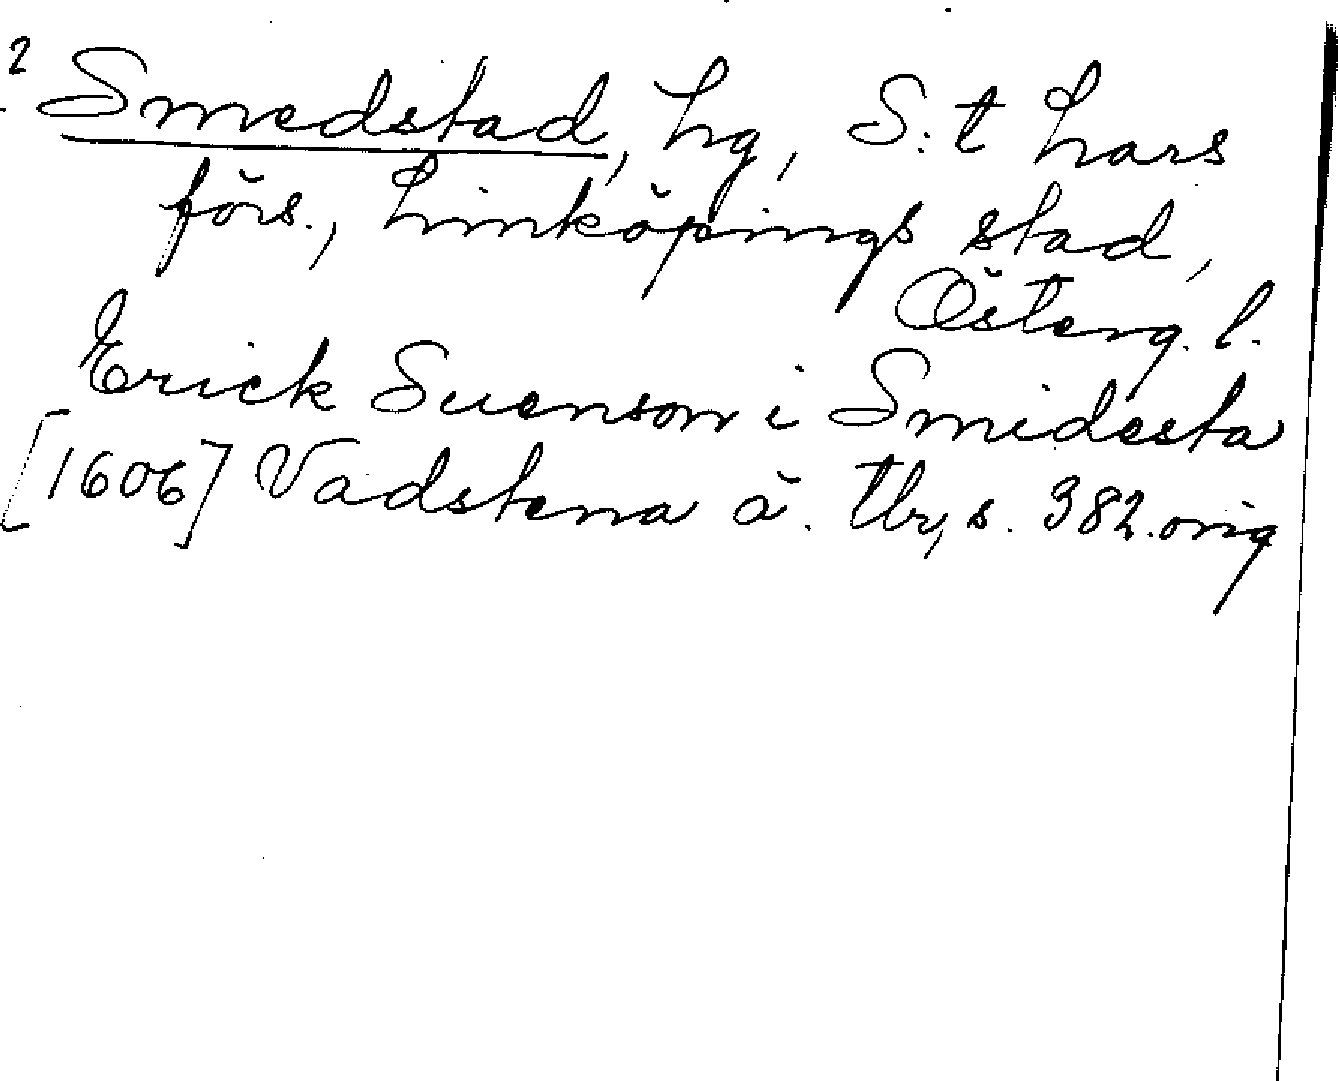 2 Smedstad, hg, S:t Lars
förs., Linköpings stad,
Österg. l.
Erick Suenson i Smidesta
[1606] Vadstena ä. tbr, s. 382. orig